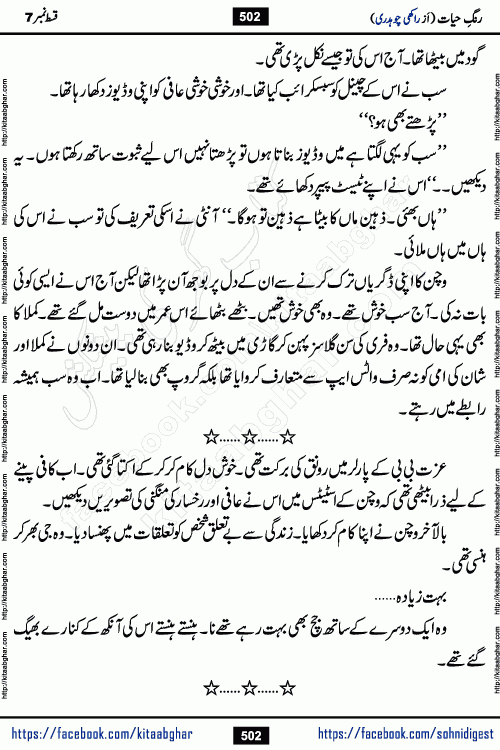 رنگِ حیات (از راکھی چوہدری)
502
قسط نمبر 7
گود میں بیٹھا تھا۔ آج اس کی تو جیسے نکل پڑی تھی۔
سب نے اس کے چینل کو سبسکرائب کیا تھا۔ اور خوشی خوشی عافی کو اپنی وڈیوز دکھا رہا تھا۔
’’پڑھتے بھی ہو؟‘‘
’’سب کو یہی لگتا ہے میں وڈیوز بناتا ہوں تو پڑھتا نہیں اس لیے ثبوت ساتھ رکھتا ہوں۔ یہ
دیکھیں۔۔‘‘اس نے اپنے ٹیسٹ پیپر دکھائے تھے۔
’’ہاں بھئی۔ ذہین ماں کا بیٹا ہے ذہین تو ہوگا۔‘‘ آنٹی نے اسکی تعریف کی تو سب نے اس کی
ہاں میں ہاں ملائی۔
وچن کا اپنی ڈگریاں ترک کرنے سے ان کے دل پر بوجھ آن پڑا تھا لیکن آج اس نے ایسی کوئی
بات نہ کی۔ آج سب خوش تھے۔ وہ بھی خوش تھیں۔ بٹھے بٹھائے اس عمر میں دوست مل گئے تھے۔ کملا کا
بھی یہی حال تھا۔ وہ فری کی سن گلاسز پہن کر گاڑی میں بیٹھ کر وڈیو بنا رہی تھی۔ ان دونوں نے کملا اور
شان کی امی کو نہ صرف واٹس ایپ سے متعارف کروایا تھا بلکہ گروپ بھی بنا لیا تھا۔ اب وہ سب ہمیشہ
رابطے میں رہتے۔
☆......☆......☆
عزت بی بی کے پارلر میں رونق کی برکت تھی۔ خوش دل کام کر کر کے اکتا گئی تھی۔ اب کافی پینے
کے لیے ذرا بیٹھی تھی کہ وچن کے اسٹیٹس میں اس نے عافی اور رخسار کی منگنی کی تصویریں دیکھیں۔
بالآخر وچن نے اپنا کام کر دکھایا۔ زندگی سے بے تعلق شخص کو تعلقات میں پھنسا دیا۔ وہ جی بھر کر
ہنسی تھی۔
بہت زیادہ......
وہ ایک دوسرے کے ساتھ جچ بھی بہت رہے تھے نا۔ ہنستے ہنستے اس کی آنکھ کے کنارے بھیگ
گئے تھے۔
☆......☆......☆
https://facebook.com/kitaabghar
502
https://facebook.com/sohnidigest
http://kitaabghar.com